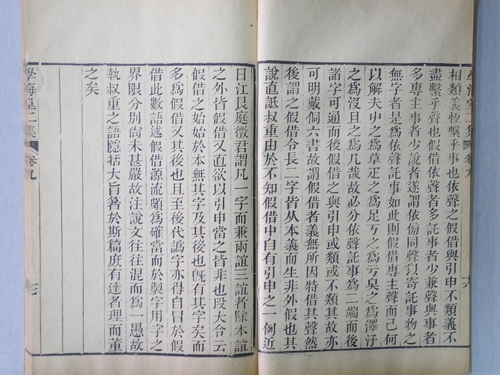 學海堂二集 卷九
相類義故繫乎事也依聲之假借與引申不類義不
盡繫乎聲也假借依聲者多託事者少兼聲與事者
多專主聲者少說者遂謂依傷同聲以寄託事物之
無字者是亦為依聲託事如此則假借專主聲而已何
以解夫屮之為草疋之為足丂之為亏臭之為澤㳅
之為沒且之為几哉故必分依聲託事為二端而後
諸字之可通而或借之與引申或類或不類其故亦
可明戴侗六書故謂假借者義無所因特借其聲然
後謂之假借令長二字皆从本義而生非外假也其
說直詆叔重由於不知假借中自有引申之一例近
日江艮庭徵君謂凡一字而兼兩誼三誼者除本誼
之外皆假借又直欲以引申當之皆非也段大令云
假借之始始於本無其字及其後也旣有其字矣而
多為假借又其後也且至後代譌字亦得自冒於假
借此數語述假借源流頗為確當而於製字用字之
界限分別尚未甚嚴故注說文往往混而為一愚故
執叔重之語隱括大旨著於斯篇庶有達者理而董
之矣
學海堂二集 卷九